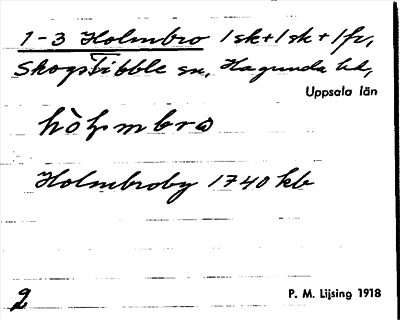 1-3 Holmbro 1 sk + 1 sk + 1 fr,
Skogstibble sn, Hagunda hd,
Uppsala län
hòlmbro
Holmbroby 1740 kb
2 P. M. Lijsing 1918